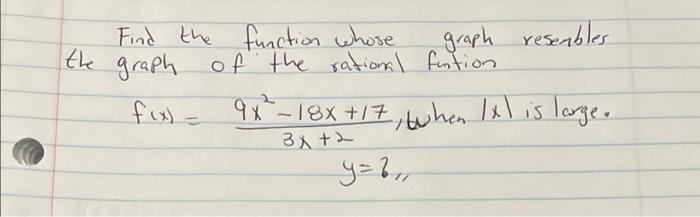 Find the function whose graph resembles
the graph of the rational funtion
f(x) = 9x² - 18x + 17 / 3x + 2, when |x| is large.
y = ?,,